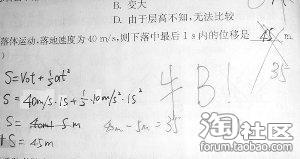 B. 变大
D. 由于层高不知,无法比较
落体运动,落地速度为 40 m/s,则下落中最后 1 s 内的位移是 45 m
35
S=V₀t+½at²
S = 40m/s·1s+½·10m/s²·1s²
牛B!
S = 40m+5m
40m-5m=35
S = 45m
淘社区
TAOBAO.COM